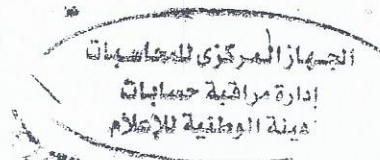 الجهاز المركزى للمحاسبات
إدارة مراقبة حسابات
هيئة الوطنية للإعلام